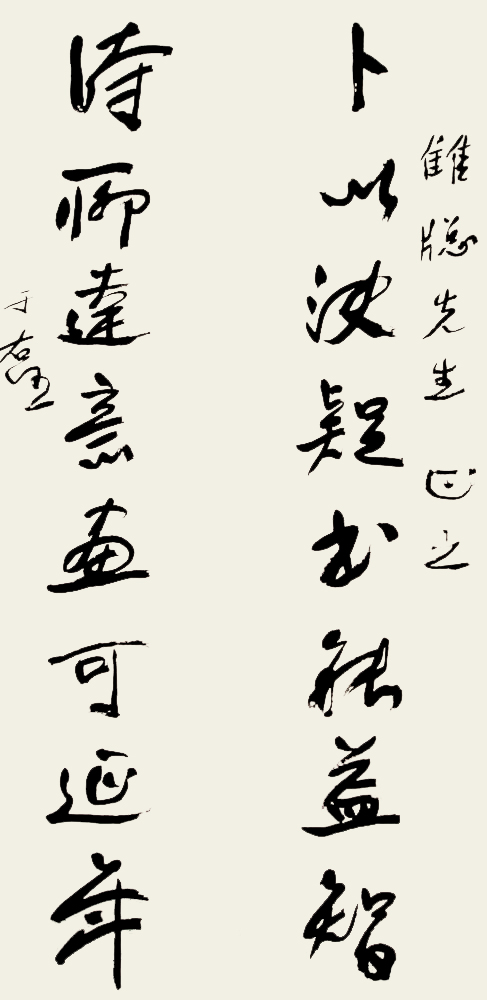 雠牕先生正之
卜以決疑書能益智
詩聊達意畫可延年
于右任